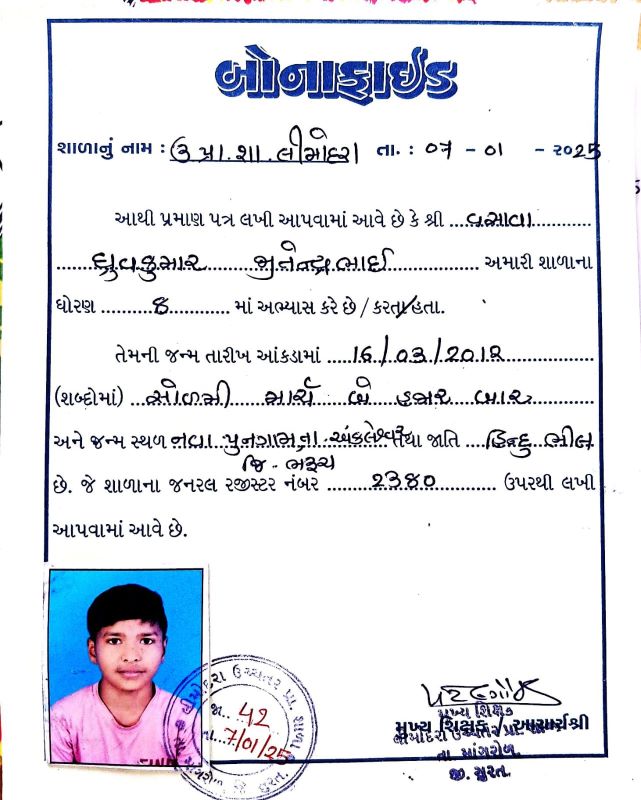 બોનાફાઇડ
શાળાનું નામ : ઉ.પ્રા.શા. લીમોદરા તા. : ૦૭ - ૦૧ - ૨૦૨૫
આથી પ્રમાણ પત્ર લખી આપવામાં આવે છે કે શ્રી વસાવા
ધ્રુવકુમાર જીતેન્દ્રભાઈ અમારી શાળાના
ધોરણ 8 માં અભ્યાસ કરે છે / કરતા હતા.
તેમની જન્મ તારીખ આંકડામાં 16/03/2012
(શબ્દોમાં) સોળમી માર્ચ બે હજાર બાર
અને જન્મ સ્થળ નવા પુનગામ તા અંકલેશ્વર તથા જાતિ હિન્દુ ભીલ
જિ - ભરૂચ
છે. જે શાળાના જનરલ રજીસ્ટર નંબર 2380 ઉપરથી લખી
આપવામાં આવે છે.
લીમોદરા ઉચ્ચતર પ્રા. શાળા
જા. 42
તા. 7/01/25
તા. માંગરોળ જિ. સુરત.
મુખ્ય શિક્ષક
મુખ્ય શિક્ષક / આચાર્યશ્રી
લીમોદરા ઉચ્ચતર પ્રા.
તા. માંગરોળ,
જી. સુરત.